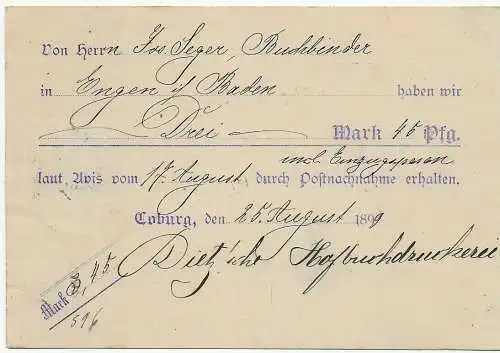 Von Herrn Jos. Seger, Buchbinder
in Engen i/ Baden haben wir
Drei Mark 45 Pfg.
incl. Einzugsspesen
laut Avis vom 17. August, durch Postnachnahme erhalten.
Coburg, den 25. August 1899
Dietz'sche Hofbuchdruckerei
Mark 3,45
596